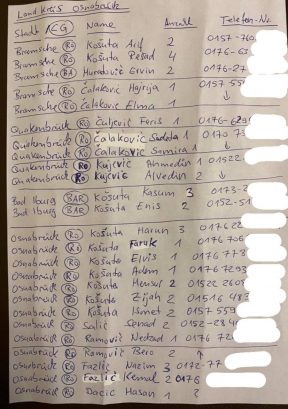 Land Kreis Osnabrück
Stadt / CG Name Anzahl Telefon-Nr.
Bramsche (RO) Košuta Arif 2 0157-760
Bramsche (RO) Košuta Rešad 4 0176-63
Bramsche (BA) Huradović Ervin 2 0176-27
Bramsche (RO) Ćalaković Hajrija 1 0157 55
Bramsche (RO) Ćalaković Elma 1 ↓
Quakenbrück (RO) Ćuljević Feris 1 0176-629
Quakenbrück (RO) Ćalaković Sudeta 1 0170 73
Quakenbrück (RO) Ćalaković Samira 1 ↓
Quakenbrück (RO) Kujević Ahmedin 1 01522
Quakenbrück (RO) Kujević Alvedin 2 ↓
Bad Iburg (BAR) Košuta Kasum 3 0173-2
Bad Iburg (BAR) Košuta Enis 2 0152-51
Osnabrück (RO) Košuta Harun 3 0176 22
Osnabrück (RO) Košuta Faruk 1 0176 706
Osnabrück (RO) Košuta Elvis 1 0176 773
Osnabrück (RO) Košuta Adem 1 0176 7293
Osnabrück (RO) Košuta Mensur 2 01522 260
Osnabrück (RO) Košuta Zijah 2 01516 483
Osnabrück (RO) Košuta Ismet 2 0157 559
Osnabrück (RO) Salić Senad 2 0152-28
Osnabrück (RO) Ramović Nedžad 1 0176 72
Osnabrück (RO) Ramović Bero 2 ↑
Osnabrück (RO) Fazlić Nazim 3 0172-77
Osnabrück (RO) Fazlić Kemal 2 0176
Osnabrück (RO) Dacić Hasan 1 ?